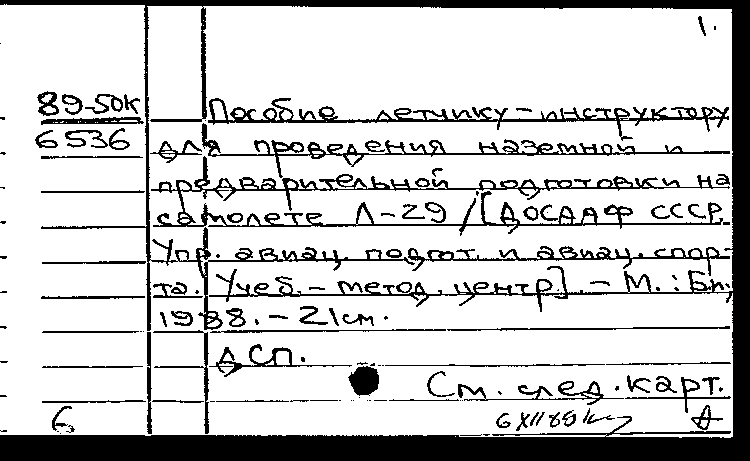 1.
89-50К
6536
Пособие летчику-инструктору
для проведения наземной и
предварительной подготовки на
самолете Л-29 /[ДОСААФ СССР.
Упр. авиац. подгот. и авиац. спор-
та. Учеб.-метод. центр]. - М. : Би,
1988. - 21см.
ДСП.
См. след. карт.
6
6 XII 89